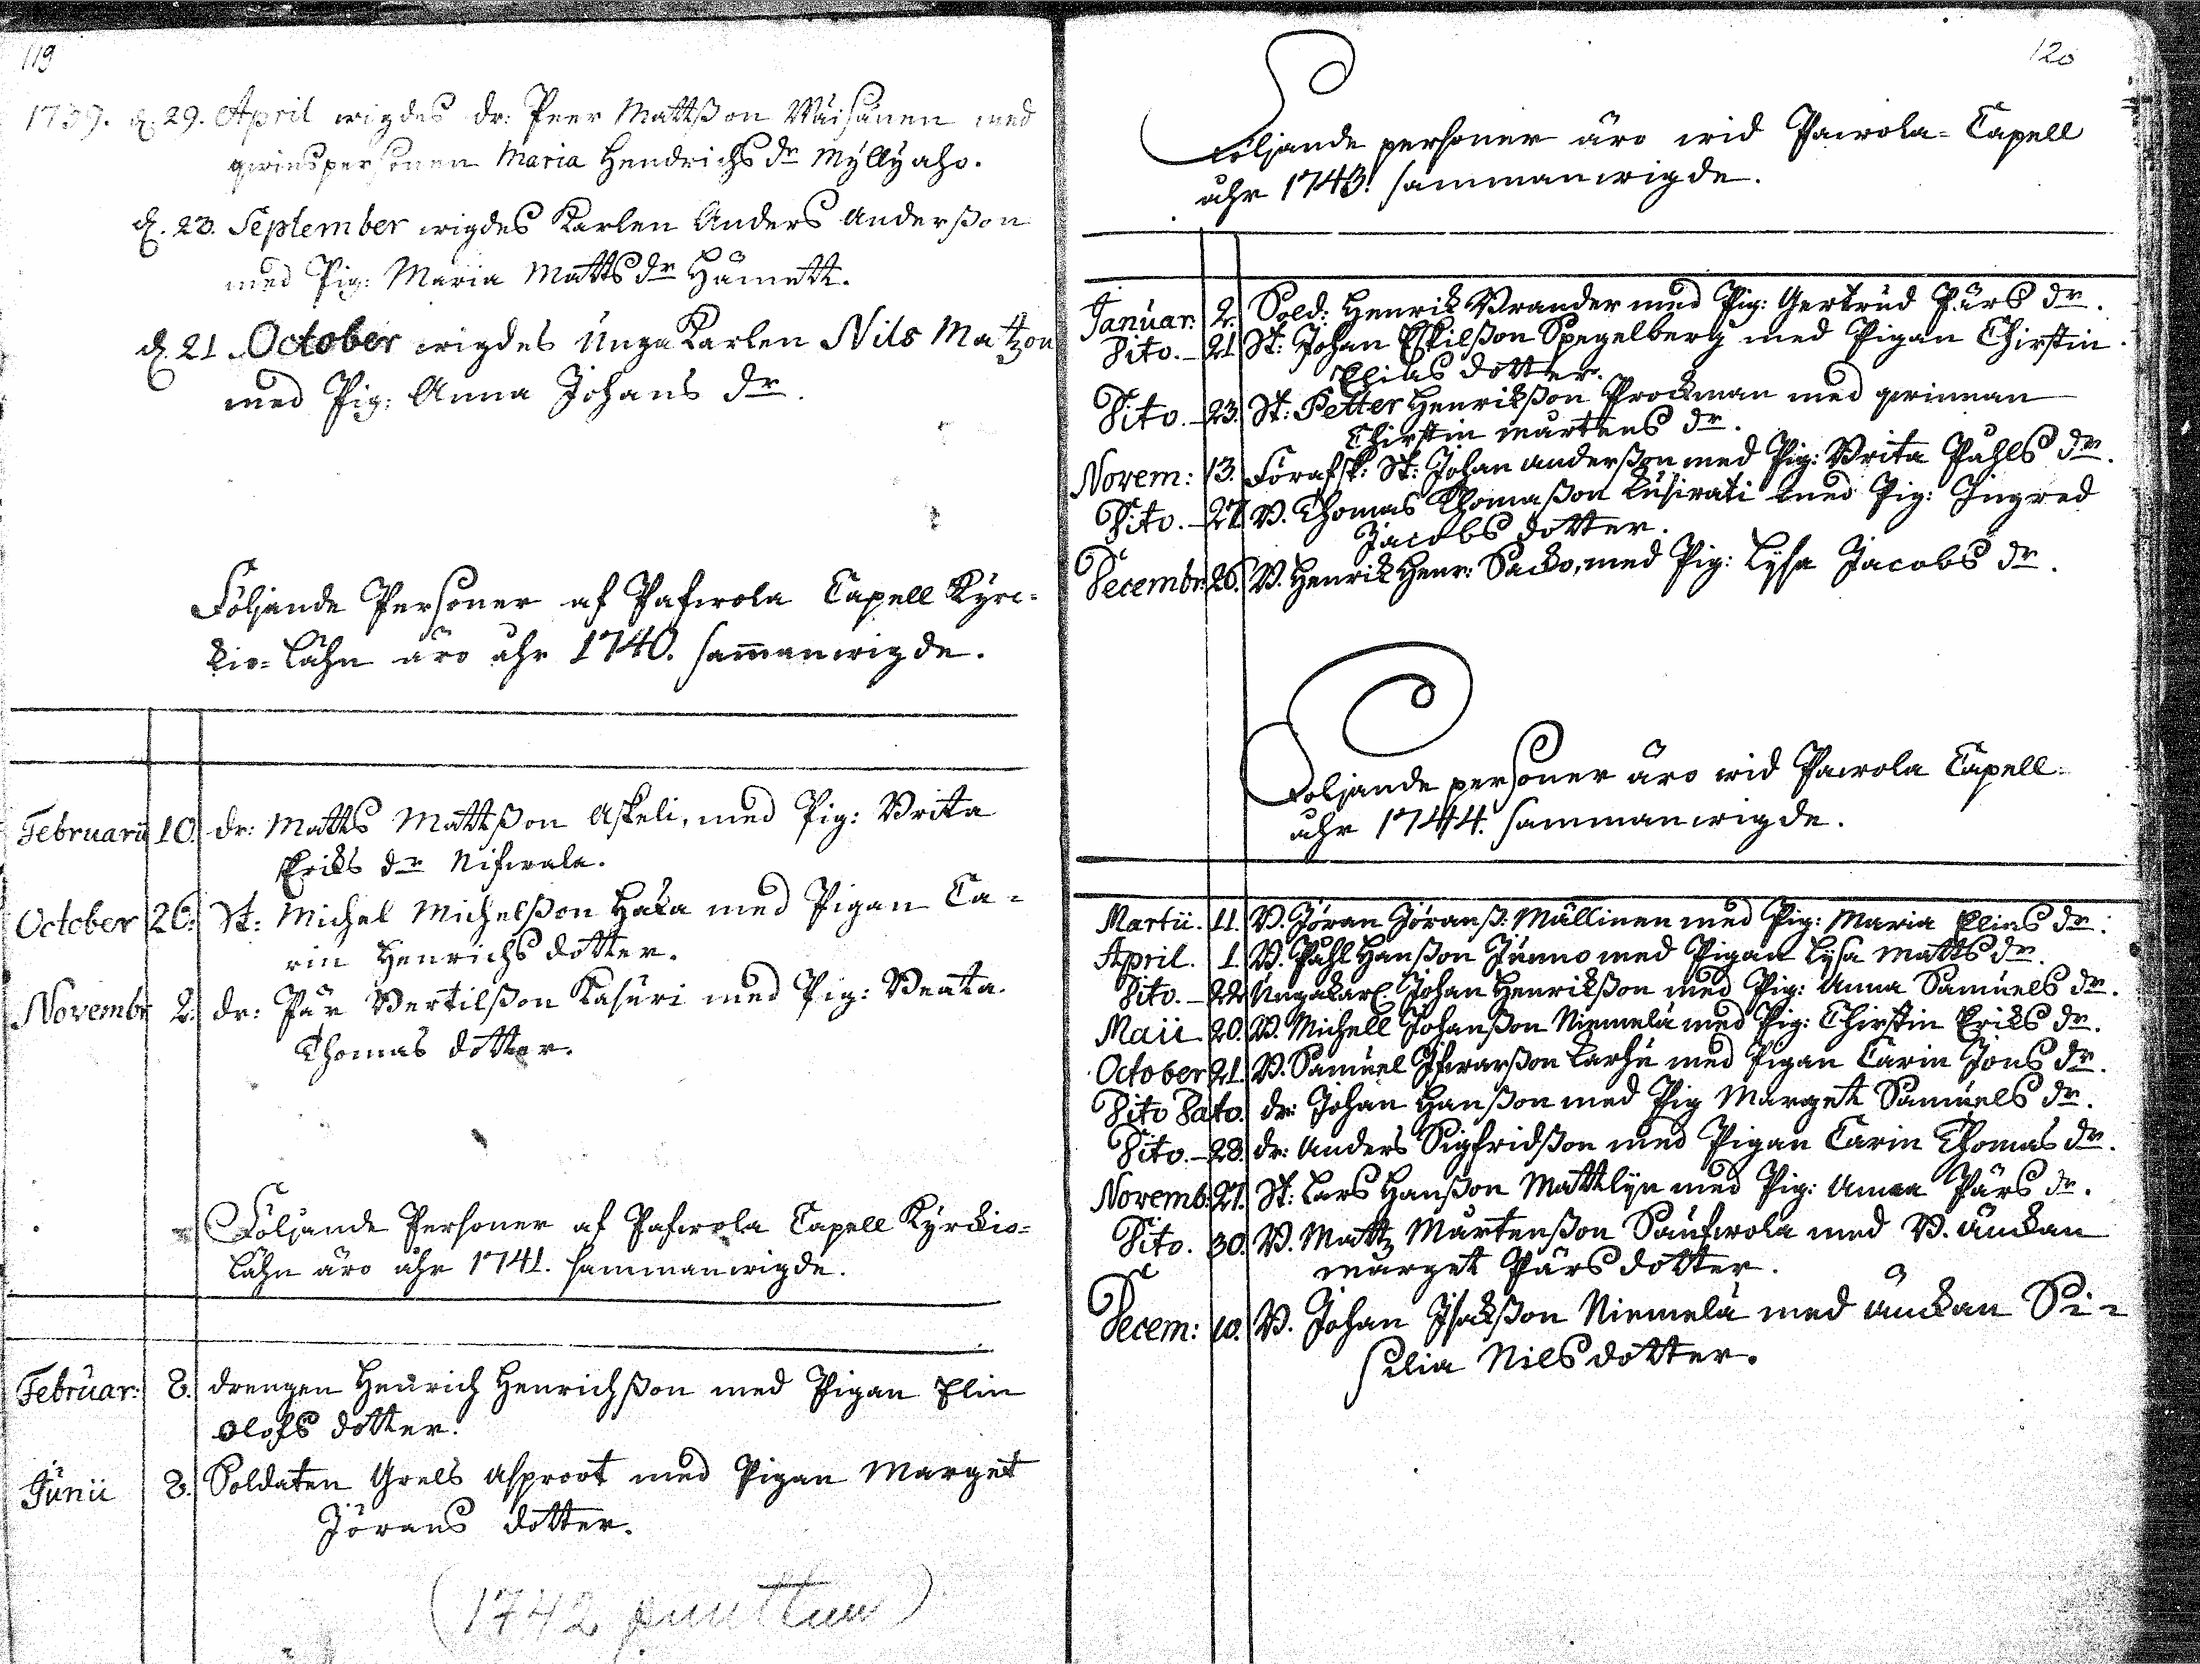 119
1739. d. 29. April wigdes dr: Peer Mattßon Wäisänen med
qwinspersonen Maria Hendrichs dr Myllyaho.
d. 23. September wigdes Karlen Anders Anderßon
med Pig: Maria Matts dr Hämett.
d. 21 October wigdes Unga Karlen Nils Matzon
med Pig: Anna Johans dr.
Följande Personer af Pafwola Capell Kyrc-
kio-Lähn äro åhr 1740. samanwigde.
Februarii 10. dr: Matts Mattßon Askeli, med Pig: Brita
Eriks dr Nifwala.
October 26: St: Michel Michelßon Haka med Pigan Ca-
rin Henrichs dotter.
Novembr 2. dr: Pär Bertilßon Kasuri med Pig: Beata
Thomas dotter.
Följande Personer af Pafwola Capell Kyrckio-
Lähn äro åhr 1741. sammanwigde.
Februar: 8. drengen Henrich Henrichßon med Pigan Elin
Olofs dotter.
Junii 8. Soldaten Grels Asproot med Pigan Marget
Jörans dotter.
(1742 puuttuu)
120
Följande personer äro wid Pawola-Capell
åhr 1743. sammanwigde.
Januar: 2. Sold: Henrik Brander med Pig: Gertrud Pärs dr.
Dito. - 21 St: Johan Eskilßon Spegelberg med Pigan Chirstin
Elias dotter.
Dito. - 23. St: Petter Henrikßon Brockman med qwinnan
Chirstin Mårtens dr.
Novem: 13. Förafsk: St: Johan Anderßon med Pig: Brita Påhls dr.
Dito. - 27. B. Thomas Thomaßon Lusirati med Pig: Ingred
Jacobs dotter.
Decembr: 26. B. Henrik Henr: Sacko, med Pig: Lysa Jacobs dr.
Följande personer äro wid Pawola Capell
åhr 1744. sammanwigde.
Martii. 11. B. Jöran Jöranß: Mällinen med Pig: Maria Elias dr.
April. 1. B. Påhl Hanßon Junno med Pigan Lysa Matts dr.
Dito. - 22 Ungakarl. Johan Henrikßon med Pig: Anna Samuels dr.
Maii 20. B. Michell Johanßon Niemelä med Pig: Chirstin Eriks dr.
October 21. B. Samuel Ifwarßon Karhu med Pigan Carin Jöns dr.
Dito Dato. dr: Johan Hanßon med Pig Marget Samuels dr.
Dito. - 28. dr: Anders Sigfridßon med Pigan Carin Thomas dr.
Novemb: 27. St: Lars Hanßon Mattlyn med Pig: Anna Pärs dr.
Dito. 30. B. Mattz Mårtenßon Saufwola med B. änckan
Marget Pärs dotter.
Decem: 10. B. Johan Isakßon Niemelä med änckan Si-
silia Nils dotter.